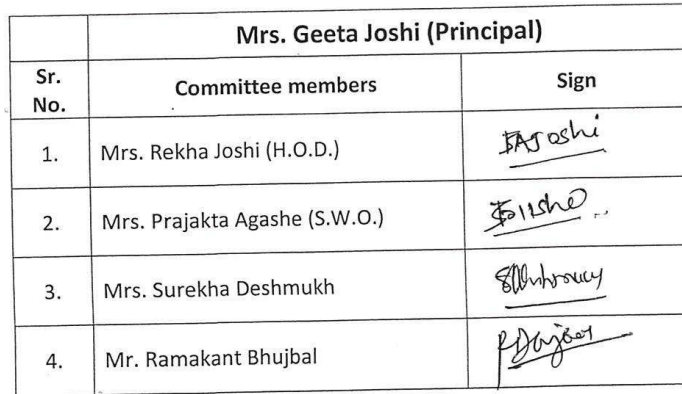 Mrs. Geeta Joshi (Principal)
Sr. No. Committee members Sign
1. Mrs. Rekha Joshi (H.O.D.)
2. Mrs. Prajakta Agashe (S.W.O.)
3. Mrs. Surekha Deshmukh
4. Mr. Ramakant Bhujbal